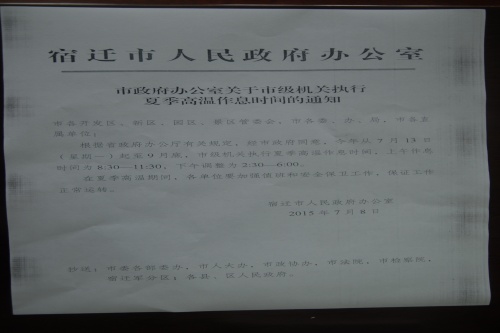 宿迁市人民政府办公室
市政府办公室关于市级机关执行
夏季高温作息时间的通知
市各开发区、新区、园区、景区管委会，市各委、办、局，市各直
属单位：
根据省政府办公厅有关规定，经市政府同意，今年从7月13日
（星期一）起至9月底，市级机关执行夏季高温作息时间，上午作息
时间为8:30—11:30，下午调整为2:30—6:00。
在夏季高温期间，各单位要加强值班和安全保卫工作，保证工作
正常运转。
宿迁市人民政府办公室
2015年7月8日
抄送：市委各部委办，市人大办，市政协办，市法院，市检察院，
宿迁军分区；各县、区人民政府。